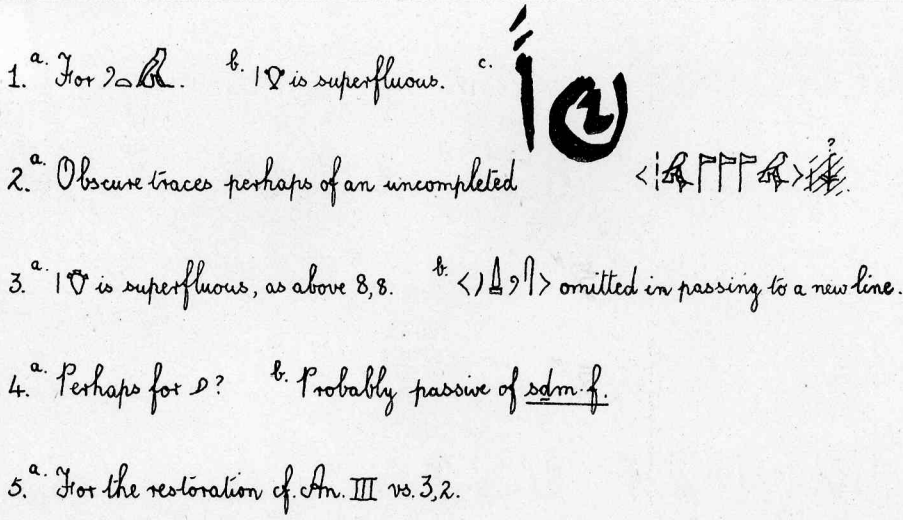 1.ᵃ· For . ᵇ· 𓏤𓄣 is superfluous. ᶜ·
2.ᵃ· Obscure traces perhaps of an uncompleted
3.ᵃ· 𓏤𓄣 is superfluous, as above 8,8. ᵇ· < > omitted in passing to a new line.
4.ᵃ· Perhaps for ? ᵇ· Probably passive of sḏm·f.
5.ᵃ· For the restoration cf. An. III vs. 3,2.